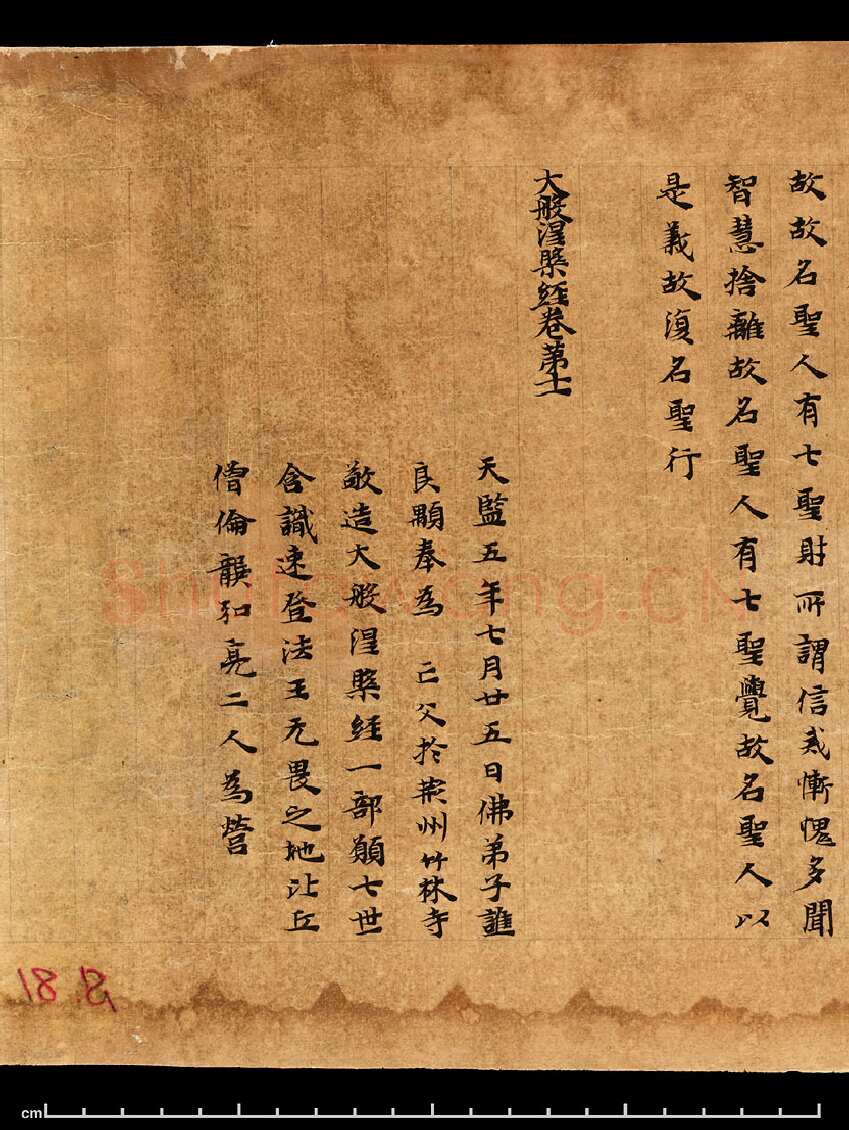 故故名聖人有七聖財所謂信戒慚愧多聞
智慧捨離故名聖人有七聖覺故名聖人以
是義故復名聖行
大般涅槃經卷第十一
天監五年七月廿五日佛弟子譙
良顒奉為 亡父於荊州竹林寺
敬造大般涅槃經一部願七世
含識速登法王无畏之地比丘
僧倫龔弘亮二人為營
Shufayoung.CN
S. 81
cm